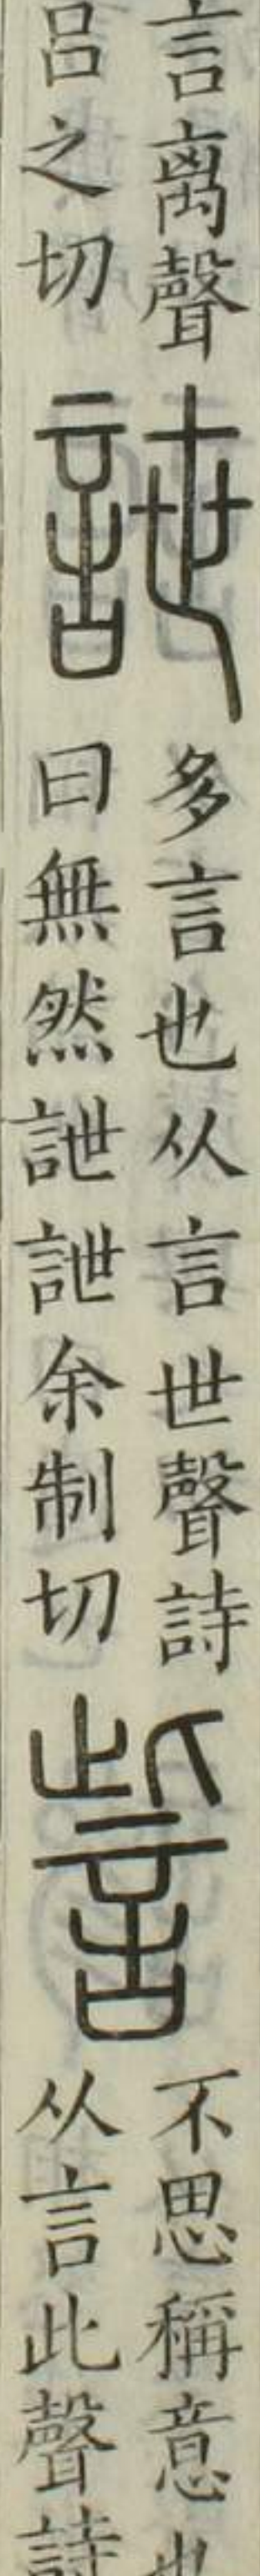 言离聲
呂之切
詍
多言也从言世聲詩
曰無然詍詍余制切
訾
不思稱意也
从言此聲詩